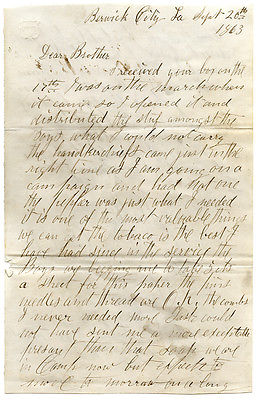 Berwick City, La Sept. 26th
1863
Dear Brother
I received your box on the
17th I was on the march when
it came so I opened it and
distributed the stuf amongst the
boys, what I could not carry
the handkerchiefs came just in the
right time as I am going on a
campaign and had not one
the pepper was just what I needed
it is one of the most valuable things
we can get the tobaco is the best I
have had since in the service the
boys are begging me to buy
a sheet for this paper the pins
needles and thread are O.K. the combs
I never needed more Just could
not have sent me a more exceptable
present than that soap we are
in Camp now but expect to
move to morrow on a long